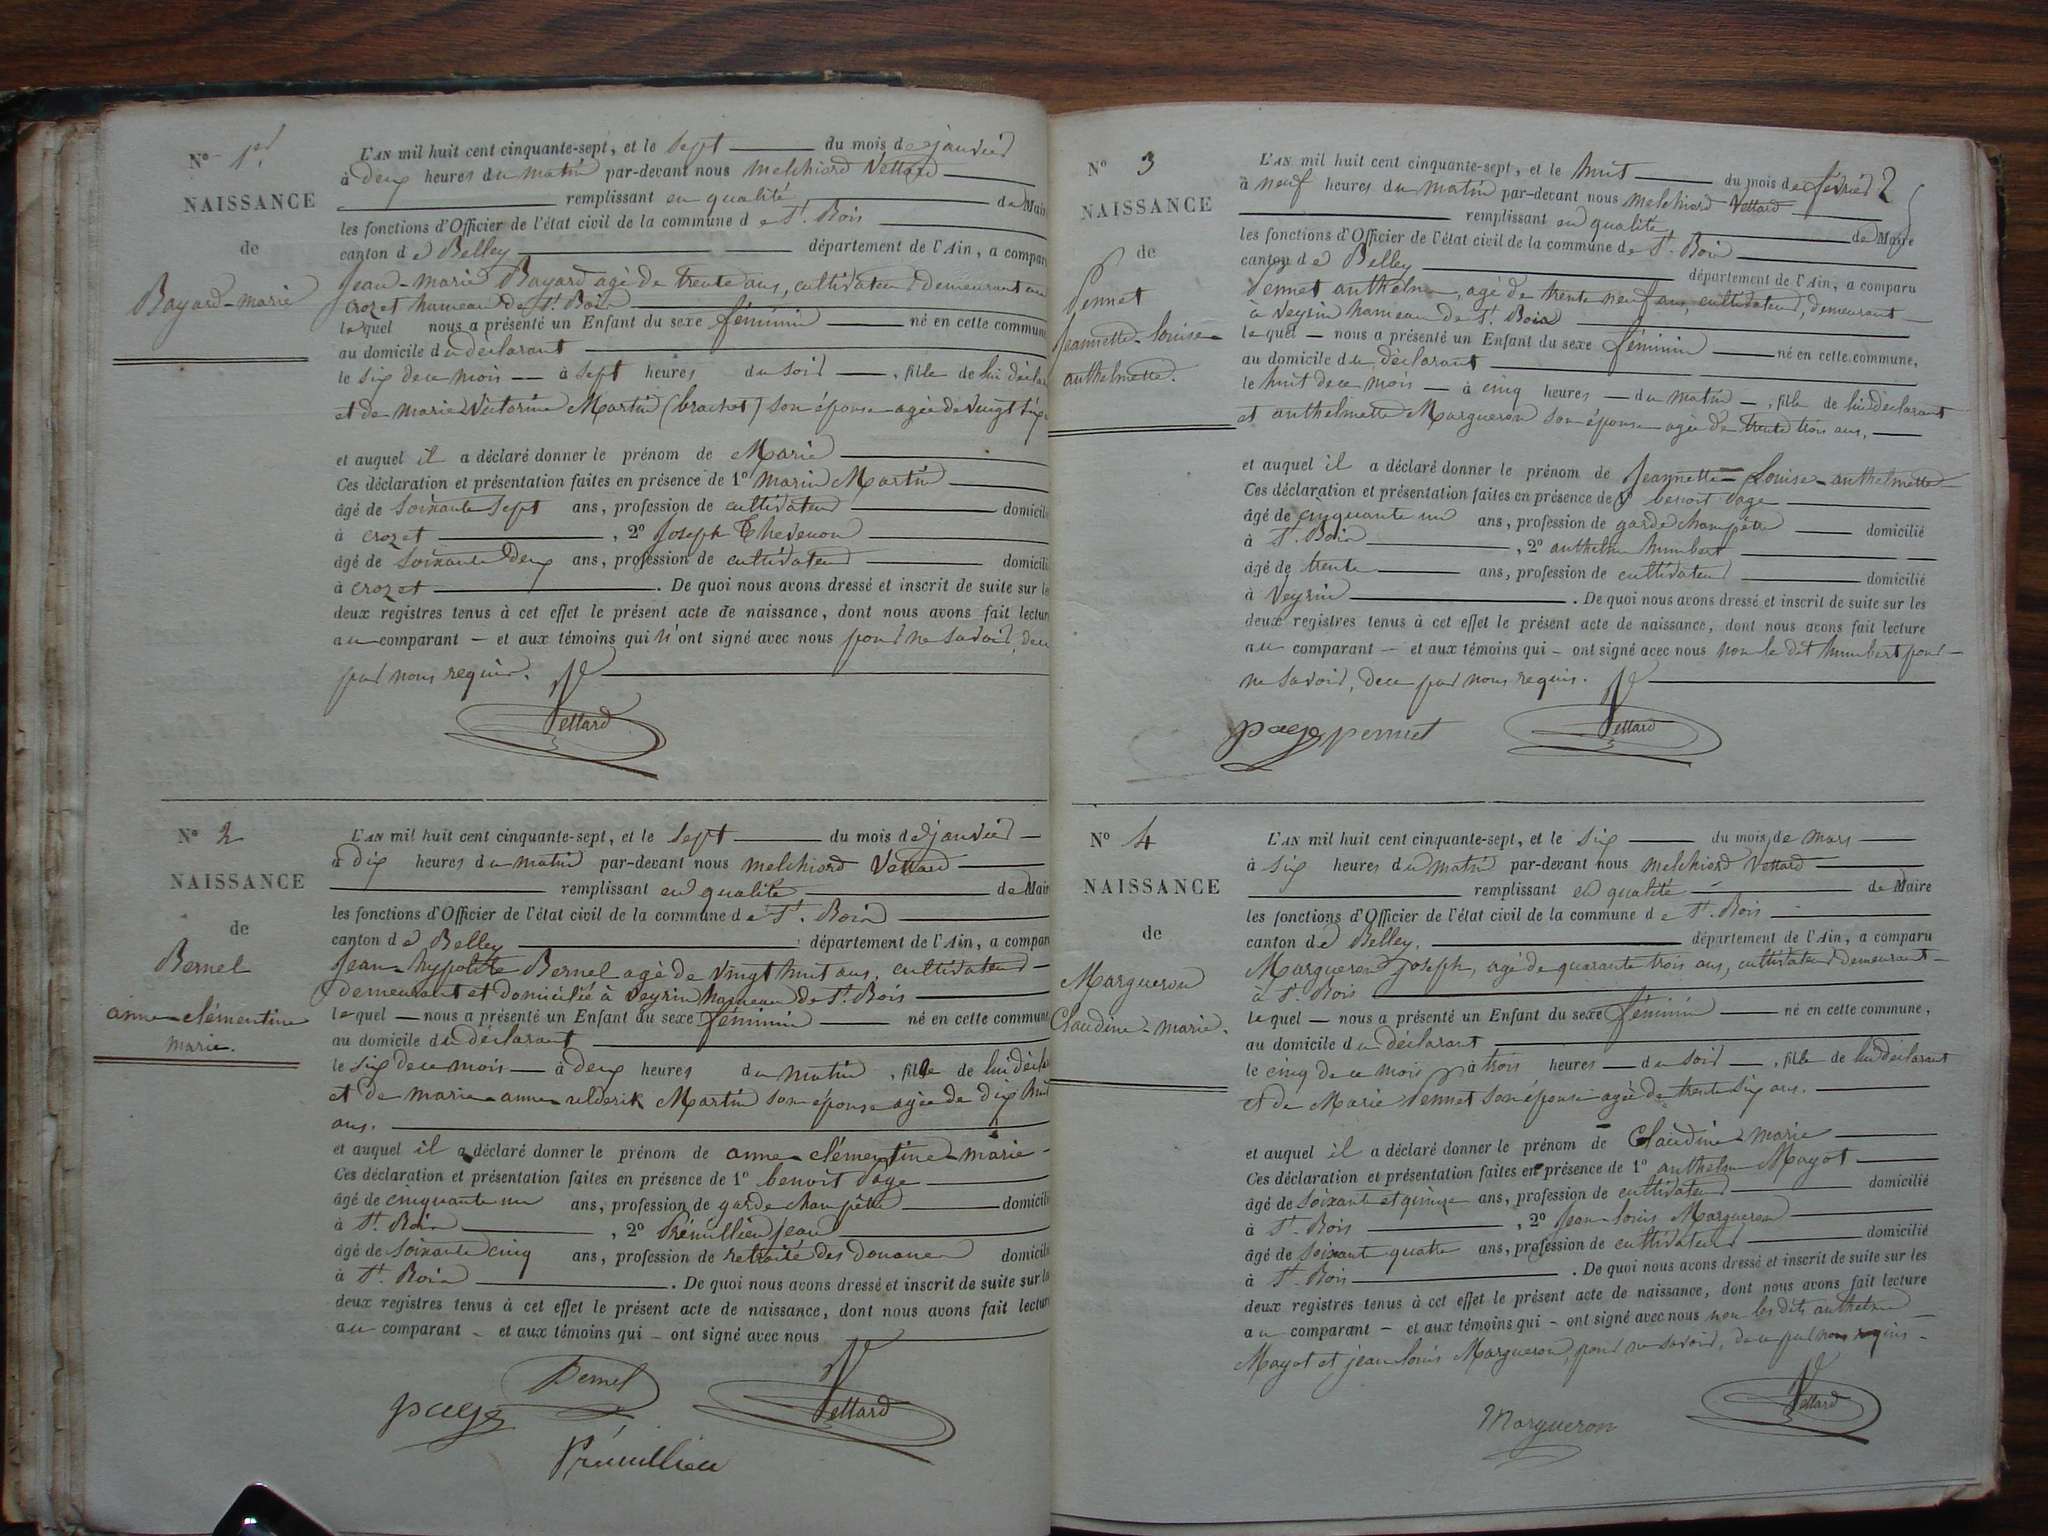 N° 1er
NAISSANCE
de
Bayard-marie
L'AN mil huit cent cinquante-sept, et le sept du mois de janvier
à deux heures du matin par-devant nous melchiord Vettard
remplissant en qualité de Mair
les fonctions d'Officier de l'état civil de la commune de St. Bois
canton de Belley département de l'Ain, a compar
Jean-marie Bayard agé de trente ans, cultivateur demeurant au
crozet hameau de St. Bois
lequel nous a présenté un Enfant du sexe féminin né en cette commune
au domicile du déclarant
le six de ce mois à sept heures du soir, fille de lui décla
et de marie Victorine Martin (brachet) son épouse agée de vingt six
et auquel il a déclaré donner le prénom de Marie
Ces déclaration et présentation faites en présence de 1° marin Martin
âgé de soixante sept ans, profession de cultivateur domicili
à crozet, 2° Joseph Thevenon
âgé de soixante deux ans, profession de cultivateur domicili
à crozet. De quoi nous avons dressé et inscrit de suite sur le
deux registres tenus à cet effet le présent acte de naissance, dont nous avons fait lectur
au comparant — et aux témoins qui n'ont signé avec nous pour ne savoir, de ce
par nous requis.
Vettard
N° 2
NAISSANCE
de
Bernel
anne-clémentine
marie.
L'AN mil huit cent cinquante-sept, et le sept du mois de janvier
à dix heures du matin par-devant nous melchiord Vettard
remplissant en qualité de Mair
les fonctions d'Officier de l'état civil de la commune de St. Bois
canton de Belley département de l'Ain, a compar
Jean-hypolite Bernel agé de vingt huit ans, cultivateur
demeurant et domicilié à Veyrin hameau de St. Bois
lequel — nous a présenté un Enfant du sexe féminin né en cette commune
au domicile du déclarant
le six de ce mois — à deux heures du matin, fille de lui décla
et de marie-anne-ulderik Martin son épouse agée de dix huit
ans.
et auquel il a déclaré donner le prénom de anne-clémentine-marie
Ces déclaration et présentation faites en présence de 1° benoit page
âgé de cinquante un ans, profession de garde champêtre domicili
à St. Bois, 2° Prémillieu jean
âgé de soixante cinq ans, profession de retraité des douanes domicili
à St. Bois. De quoi nous avons dressé et inscrit de suite sur le
deux registres tenus à cet effet le présent acte de naissance, dont nous avons fait lectur
au comparant — et aux témoins qui — ont signé avec nous
page Bernel Vettard
Prémillieu
2
N° 3
NAISSANCE
de
Pennet
Jeannette-louise-
anthelmette.
L'AN mil huit cent cinquante-sept, et le huit du mois de février
à neuf heures du matin par-devant nous melchiord Vettard
remplissant en qualité de Maire
les fonctions d'Officier de l'état civil de la commune de St. Bois
canton de Belley département de l'Ain, a comparu
Pennet anthelme, agé de trente neuf ans, cultivateur, demeurant
à Veyrin hameau de St. Bois
lequel — nous a présenté un Enfant du sexe féminin né en cette commune,
au domicile du déclarant
le huit de ce mois — à cinq heures — du matin —, fille de lui déclarant
et anthelmette Margueron son épouse agée de trente trois ans,
et auquel il a déclaré donner le prénom de Jeannette-Louise-anthelmette
Ces déclaration et présentation faites en présence de 1° benoit page
âgé de cinquante un ans, profession de garde champêtre domicilié
à St. Bois, 2° anthelme humbert
âgé de trente ans, profession de cultivateur domicilié
à Veyrin. De quoi nous avons dressé et inscrit de suite sur les
deux registres tenus à cet effet le présent acte de naissance, dont nous avons fait lecture
au comparant — et aux témoins qui — ont signé avec nous non le dit humbert pour
ne savoir, de ce par nous requis.
page pennet Vettard
N° 4
NAISSANCE
de
Margueron
Claudine-marie.
L'AN mil huit cent cinquante-sept, et le six du mois de mars
à six heures du matin par-devant nous melchiord Vettard
remplissant en qualité de Maire
les fonctions d'Officier de l'état civil de la commune de St. Bois
canton de Belley. département de l'Ain, a comparu
Margueron joseph, agé de quarante trois ans, cultivateur demeurant
à St. Bois
lequel — nous a présenté un Enfant du sexe féminin né en cette commune,
au domicile du déclarant
le cinq de ce mois à trois heures — du soir —, fille de lui déclarant
et de Marie Pennet son épouse agée de trente six ans.
et auquel il a déclaré donner le prénom de Claudine-marie
Ces déclaration et présentation faites en présence de 1° anthelme Mayot
âgé de soixante et quinze ans, profession de cultivateur domicilié
à St. Bois, 2° Jean-louis Margueron
âgé de soixante quatre ans, profession de cultivateur domicilié
à St. Bois. De quoi nous avons dressé et inscrit de suite sur les
deux registres tenus à cet effet le présent acte de naissance, dont nous avons fait lecture
au comparant — et aux témoins qui — ont signé avec nous non les dits anthelme
Mayot et jean louis Margueron, pour ne savoir, de ce par nous requis
Margueron Vettard